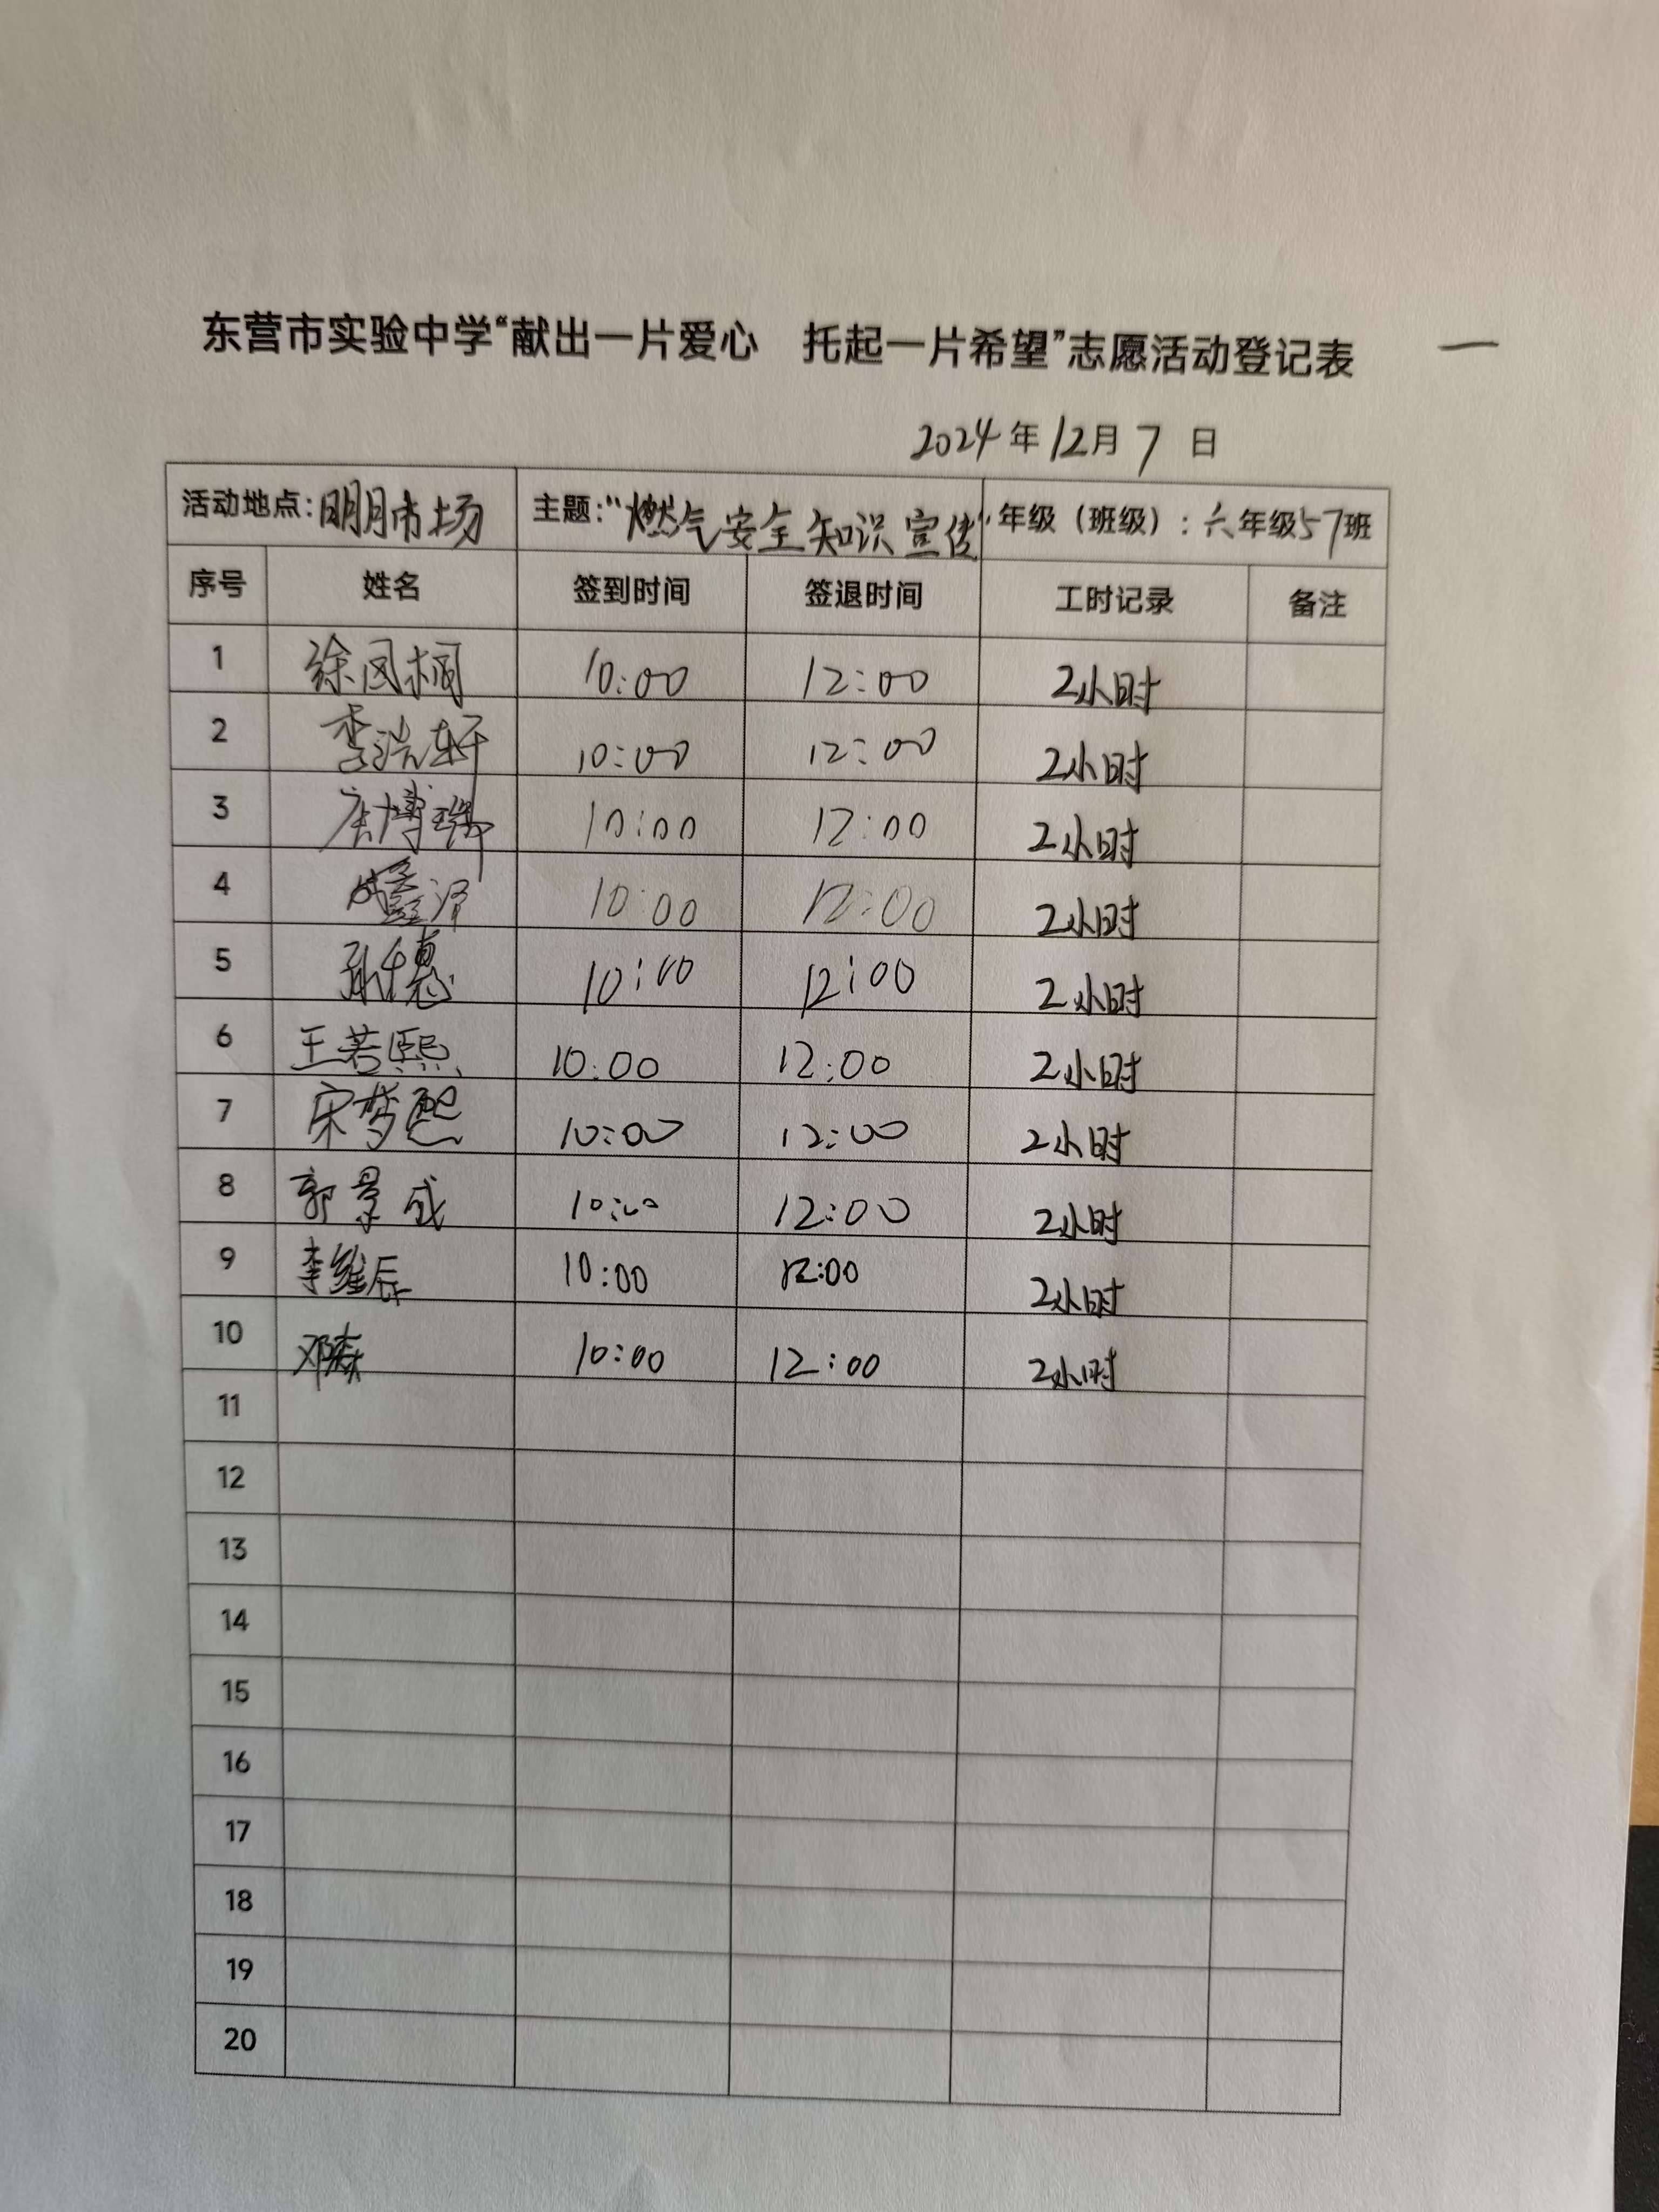 东营市实验中学“献出一片爱心 托起一片希望”志愿活动登记表 一
2024年12月7日
活动地点:明月市场 主题:“燃气安全知识宣传” 年级（班级）: 六年级57班
序号 姓名 签到时间 签退时间 工时记录 备注
1 徐凤桐 10:00 12:00 2小时
2 李浩轩 10:00 12:00 2小时
3 博瑞 10:00 12:00 2小时
4 10:00 12:00 2小时
5 孙千惠 10:00 12:00 2小时
6 王若熙 10:00 12:00 2小时
7 宋梦熙 10:00 12:00 2小时
8 郭景成 10:00 12:00 2小时
9 李维辰 10:00 12:00 2小时
10 邓森 10:00 12:00 2小时
11
12
13
14
15
16
17
18
19
20